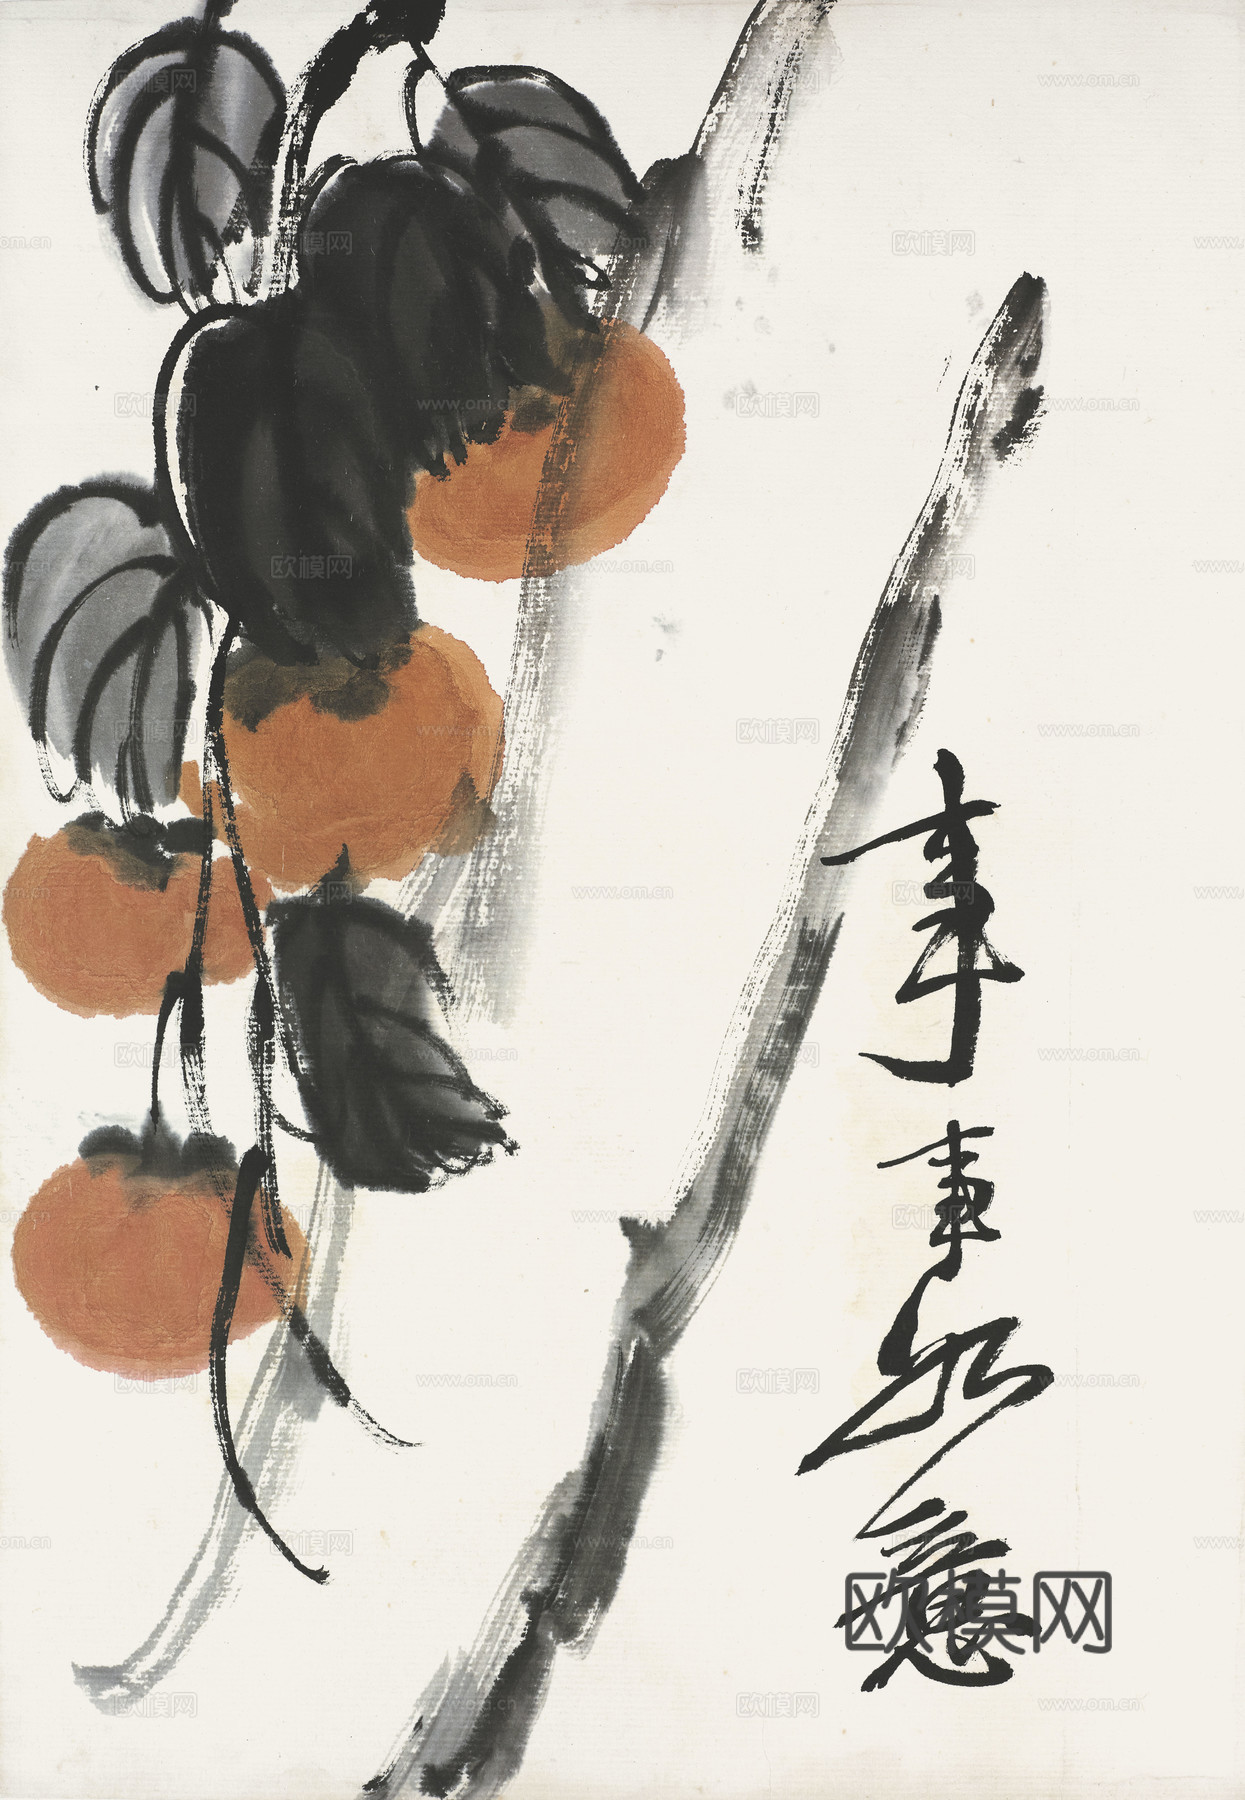 事事如意
欧模网
www.om.cn